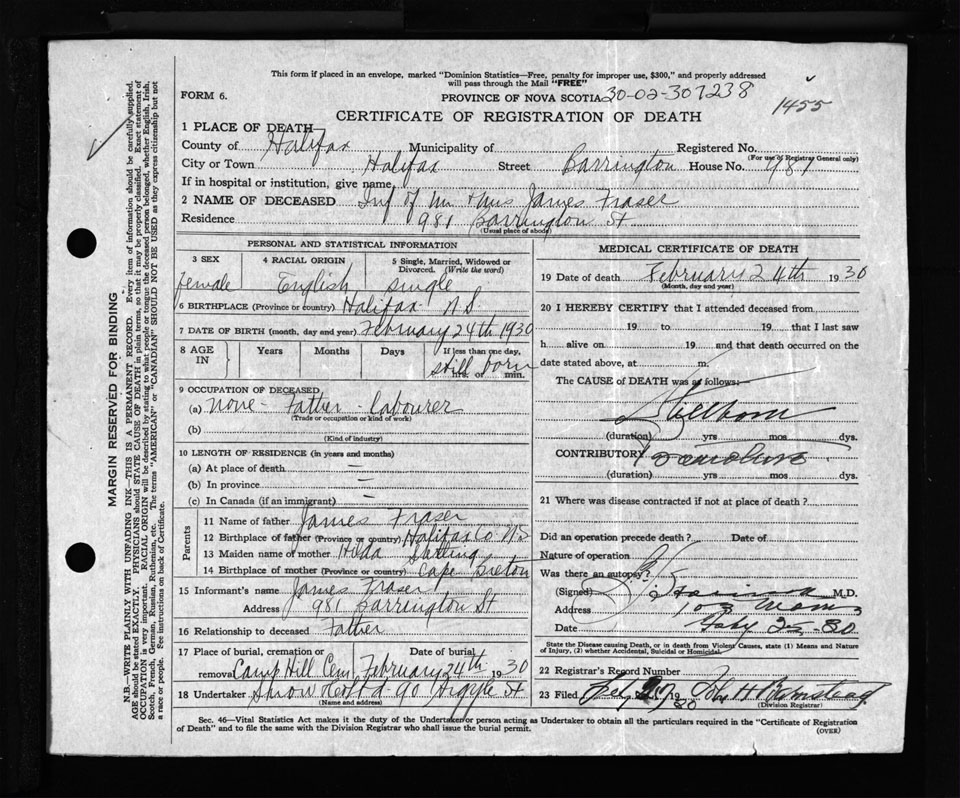 This form if placed in an envelope, marked "Dominion Statistics—Free, penalty for improper use, $300," and properly addressed
will pass through the Mail "FREE"
FORM 6.
PROVINCE OF NOVA SCOTIA 30-02-307238
1455
CERTIFICATE OF REGISTRATION OF DEATH
1 PLACE OF DEATH
County of Halifax Municipality of Registered No.
(For use of Registrar General only)
City or Town Halifax Street Barrington House No. 981
If in hospital or institution, give name
2 NAME OF DECEASED Inf of Mr & Mrs James Fraser
Residence 981 Barrington St
(Usual place of abode)
PERSONAL AND STATISTICAL INFORMATION
3 SEX 4 RACIAL ORIGIN 5 Single, Married, Widowed or Divorced. (Write the word)
female English single
6 BIRTHPLACE (Province or country) Halifax N S
7 DATE OF BIRTH (month, day and year) February 24th 1930
8 AGE IN Years Months Days If less than one day, hrs. or min.
still born
9 OCCUPATION OF DECEASED
(a) none - Father Labourer
(Trade or occupation or kind of work)
(b)
(Kind of industry)
10 LENGTH OF RESIDENCE (in years and months)
(a) At place of death —
(b) In province —
(c) In Canada (if an immigrant) —
Parents
11 Name of father James Fraser
12 Birthplace of father (Province or country) Halifax Co NS
13 Maiden name of mother Hilda
14 Birthplace of mother (Province or country) Cape Breton
15 Informant's name James Fraser
Address 981 Barrington St
16 Relationship to deceased Father
17 Place of burial, cremation or removal Date of burial
Camp Hill Cem February 24th 1930
18 Undertaker Snow & Co Ltd 90 Argyle St
(Name and address)
MEDICAL CERTIFICATE OF DEATH
19 Date of death February 24th 1930
(Month, day and year)
20 I HEREBY CERTIFY that I attended deceased from
19 to 19 , that I last saw
h alive on 19 and that death occurred on the
date stated above, at m.
The CAUSE OF DEATH was as follows:—
Stillborn
(duration) yrs mos dys.
CONTRIBUTORY
(duration) yrs mos dys.
21 Where was disease contracted if not at place of death?
Did an operation precede death? Date of
Nature of operation
Was there an autopsy?
(Signed) M.D.
Address
Date Feby 25-30
State the Disease causing Death, or in death from Violent Causes, state (1) Means and Nature
of Injury, (2) whether Accidental, Suicidal or Homicidal.
22 Registrar's Record Number
23 Filed 1930 John H Barnstead
(Division Registrar)
Sec. 46—Vital Statistics Act makes it the duty of the Undertaker or person acting as Undertaker to obtain all the particulars required in the "Certificate of Registration
of Death" and to file the same with the Division Registrar who shall issue the burial permit.
(OVER)
MARGIN RESERVED FOR BINDING
N.B.—WRITE PLAINLY WITH UNFADING INK—THIS IS A PERMANENT RECORD. Every item of information should be carefully supplied.
AGE should be stated EXACTLY. PHYSICIANS should STATE CAUSE OF DEATH in plain terms, so that it may be properly classified. Exact statement of
OCCUPATION is very important. RACIAL ORIGIN will be described by stating to what people or tongue the deceased person belonged, whether English, Irish,
Scotch, French, German, Russian, Ruthenian, etc. The terms "AMERICAN" or "CANADIAN" SHOULD NOT BE USED as they express citizenship but not
a race or people. See instructions on back of Certificate.